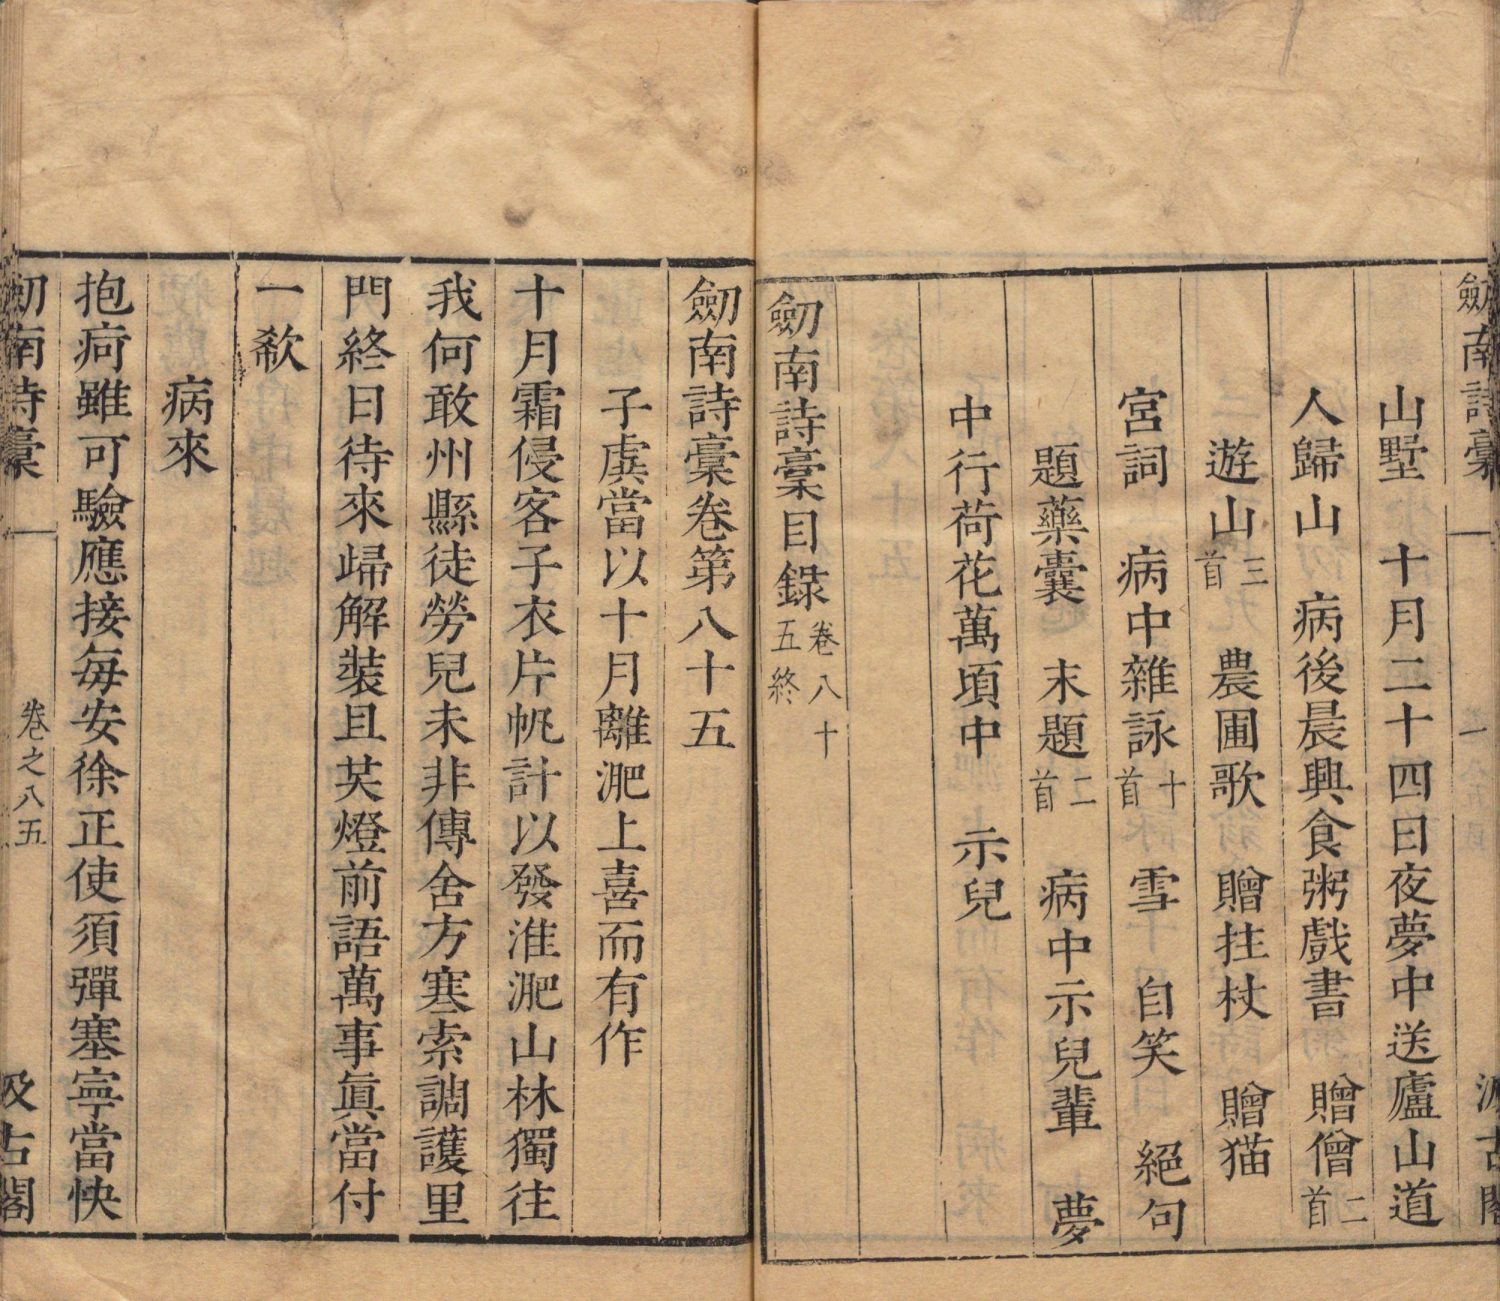 劒南詩稾
一
汲古閣
山墅　十月二十四日夜夢中送廬山道
人歸山　病後晨興食粥戲書　贈僧二首
遊山三首　農圃歌　贈拄杖　贈猫
宮詞　病中雜詠十首　雪　自笑　絕句
題藥囊　末題二首　病中示兒輩　夢
中行荷花萬頃中　示兒
劒南詩稾目録卷八十五終
劒南詩稾卷第八十五
子虡當以十月離淝上喜而有作
十月霜侵客子衣片帆計以發淮淝山林獨往
我何敢州縣徒勞兒未非傳舍方寒索調護里
門終日待來歸解裝且莫燈前語萬事眞當付
一欷
病來
抱痾雖可驗應接每安徐正使須彈塞寧當怏
劒南詩稾
一
卷之八五
汲古閣